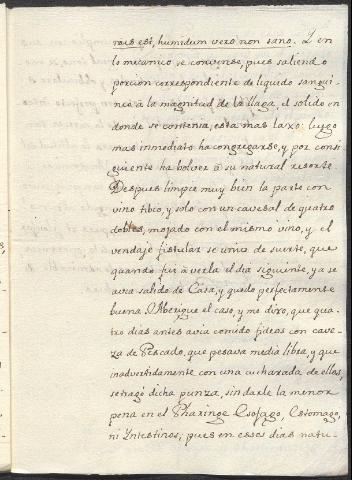 rois est, humidum vero non sano. Y en
lo mecanico se convense, pues saliendo
porcion correspondiente de liquido sangui-
neo à la magnitud de la llaga, el solido en
donde se contenia, esta mas laxo: luego
mas inmediato ha congregarse, y por consi-
guiente ha bolver a su natural resorte.
Despues limpie muy bien la parte con
vino tibio, y solo con un cavesal de quatro
dobles, mojado con el mismo vino, y el
vendaje fistular se unio de suerte, que
quando fui à verla el dia siguiente, ya se
avia salido de Casa, y quedo perfectamente
buena. Aberigue el caso, y me dixo, que qua-
tro dias antes avia comido fideos con cave-
za de Pescado, que pesava media libra, y que
inadvertidamente con una cucharada de ellos,
se tragò dicha punza, sin darle la menor
pena en el Pharinge Esofago, Estomago,
ni Intestinos; pues en essos dias natu-